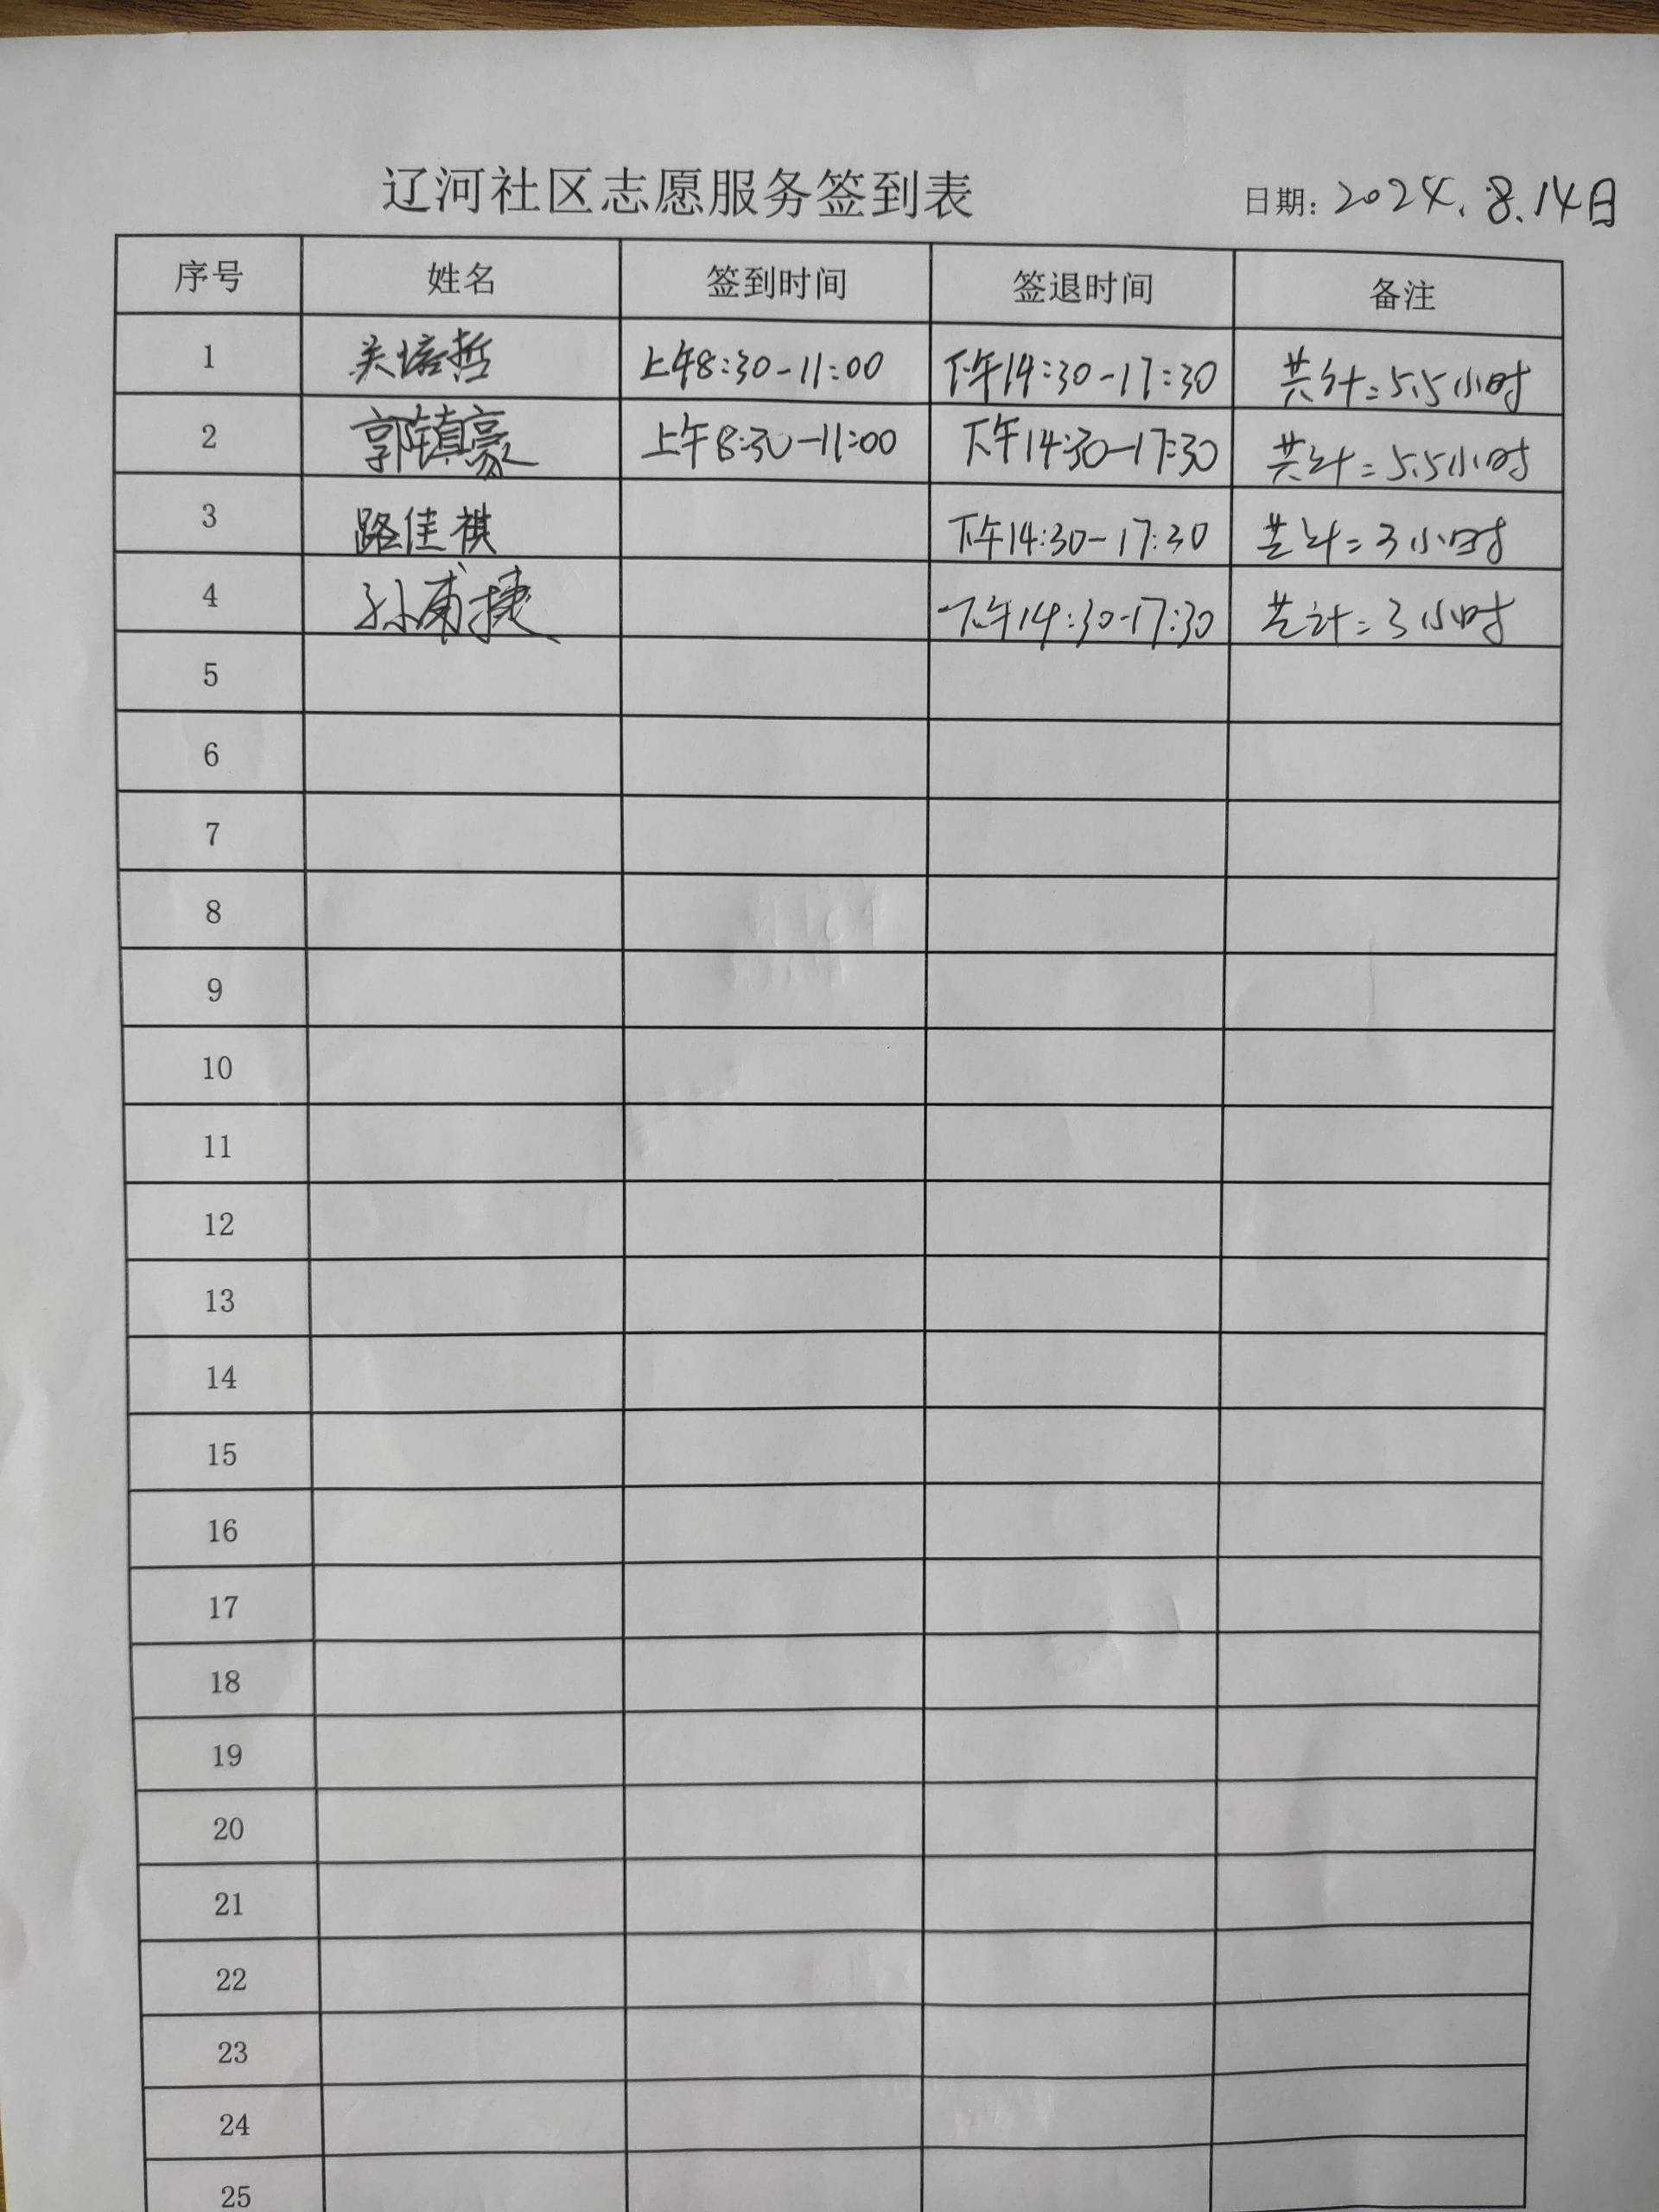 辽河社区志愿服务签到表 日期: 2024.8.14日
序号 姓名 签到时间 签退时间 备注
1 关培哲 上午8:30-11:00 下午14:30-17:30 共计=5.5小时
2 郭镇豪 上午8:30-11:00 下午14:30-17:30 共计=5.5小时
3 路佳祺 下午14:30-17:30 共计=3小时
4 孙甫捷 下午14:30-17:30 共计=3小时
5
6
7
8
9
10
11
12
13
14
15
16
17
18
19
20
21
22
23
24
25